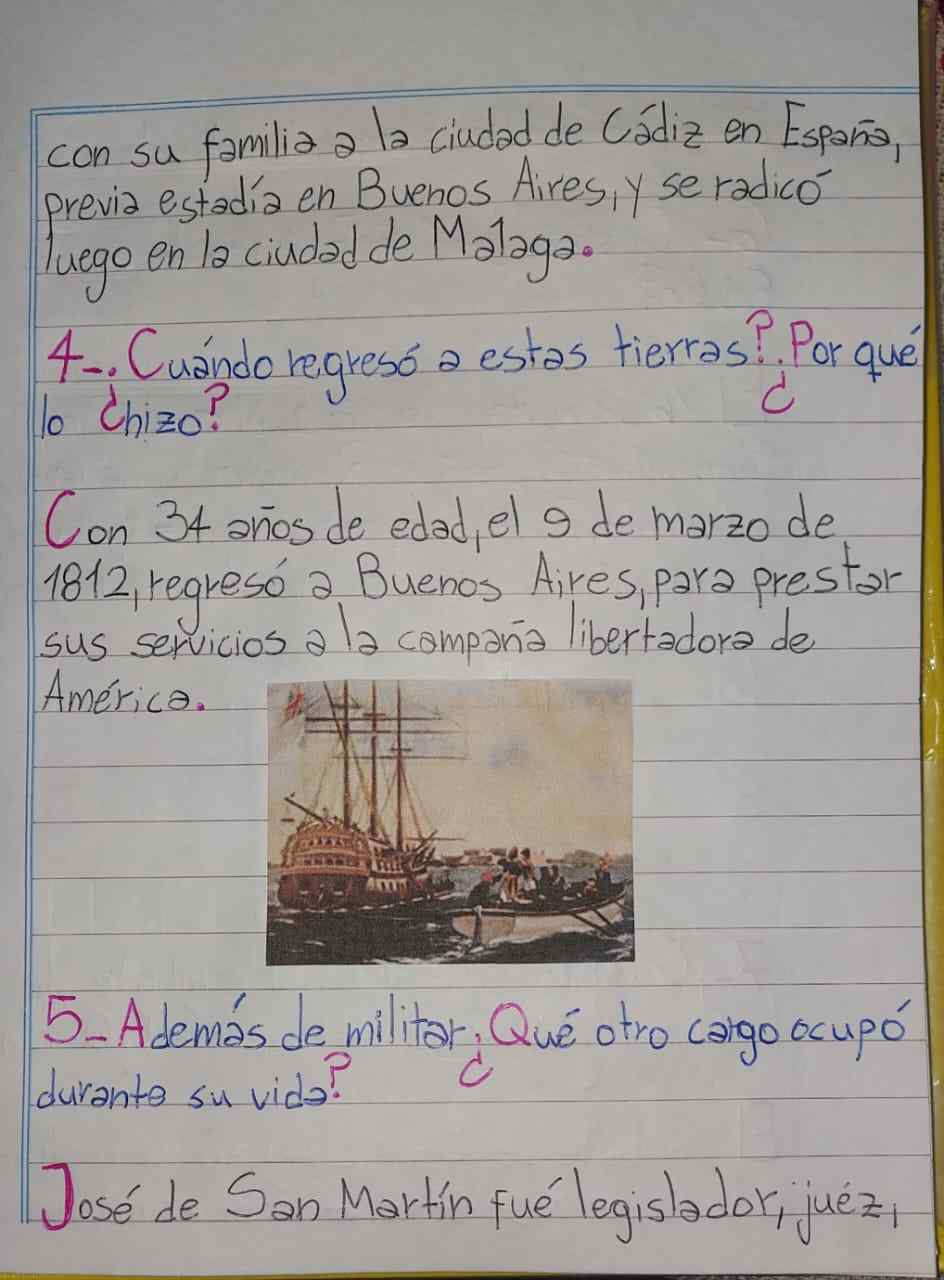 con su familia a la ciudad de Cádiz en España,
previa estadía en Buenos Aires, y se radicó
luego en la ciudad de Malaga.
4-¿Cuándo regresó a estas tierras? ¿Por qué
lo hizo?
Con 34 años de edad, el 9 de marzo de
1812, regresó a Buenos Aires, para prestar
sus servicios a la campaña libertadora de
América.
5-Además de militar, ¿Qué otro cargo ocupó
durante su vida?
José de San Martín fué legislador, juéz,